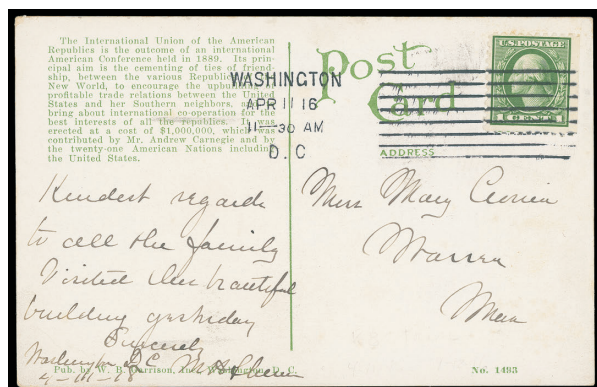 The International Union of the American
Republics is the outcome of an international
American Conference held in 1889. Its prin-
cipal aim is the cementing of ties of friend-
ship, between the various Republics of the
New World, to encourage the upbuilding of
profitable trade relations between the United
States and her Southern neighbors, and to
bring about international co-operation for the
best interests of all the republics. It was
erected at a cost of $1,000,000, which was
contributed by Mr. Andrew Carnegie and by
the twenty-one American Nations including
the United States.
Post
Card
WASHINGTON
APR 11 16
11-30 AM
D. C
U.S. POSTAGE
1 CENT 1
ADDRESS
Kindest regards
to all the family
Visited this beautiful
building yesterday
Sincerely
Washington D.C.
Miss Mary
Warren
Pub. by W. B. Garrison, Inc., Washington, D. C.
No. 1483